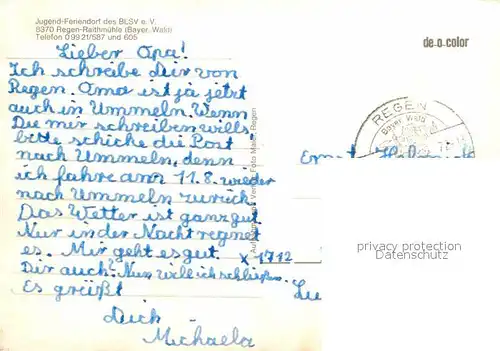 Jugend-Feriendorf des BLSV e. V.
8370 Regen-Raithmühle (Bayer. Wald)
Telefon 0 99 21/587 und 605
de-o-color
Lieber Opa!
Ich schreibe Dir von
Regen. Oma ist ja jetzt
auch in Ummeln. Wenn
Du mir schreiben wills
bitte schicke die Post
nach Ummeln, denn
ich fahre am 11.8. wieder
nach Ummeln zurück.
Das Wetter ist ganz gut
Nur in der Nacht regnet
es. Mir geht es gut.
Dir auch? Nun will ich schließen.
Es grüßt
Dich
Michaela
REGEN
Bayer. Wald
Ernst
x 1712
privacy protection
Datenschutz